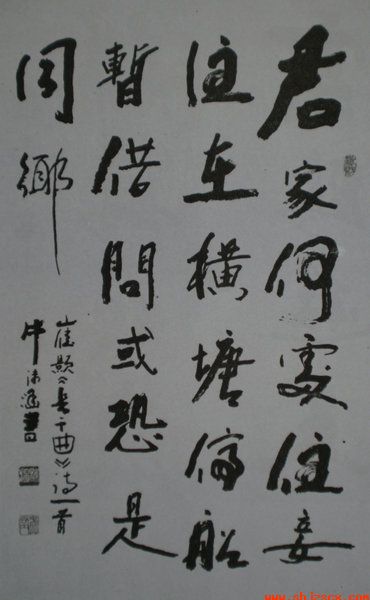 君家何處住妾
住在橫塘停船
暫借問或恐是
同鄉
崔颢《长干曲》诗一首
牛書